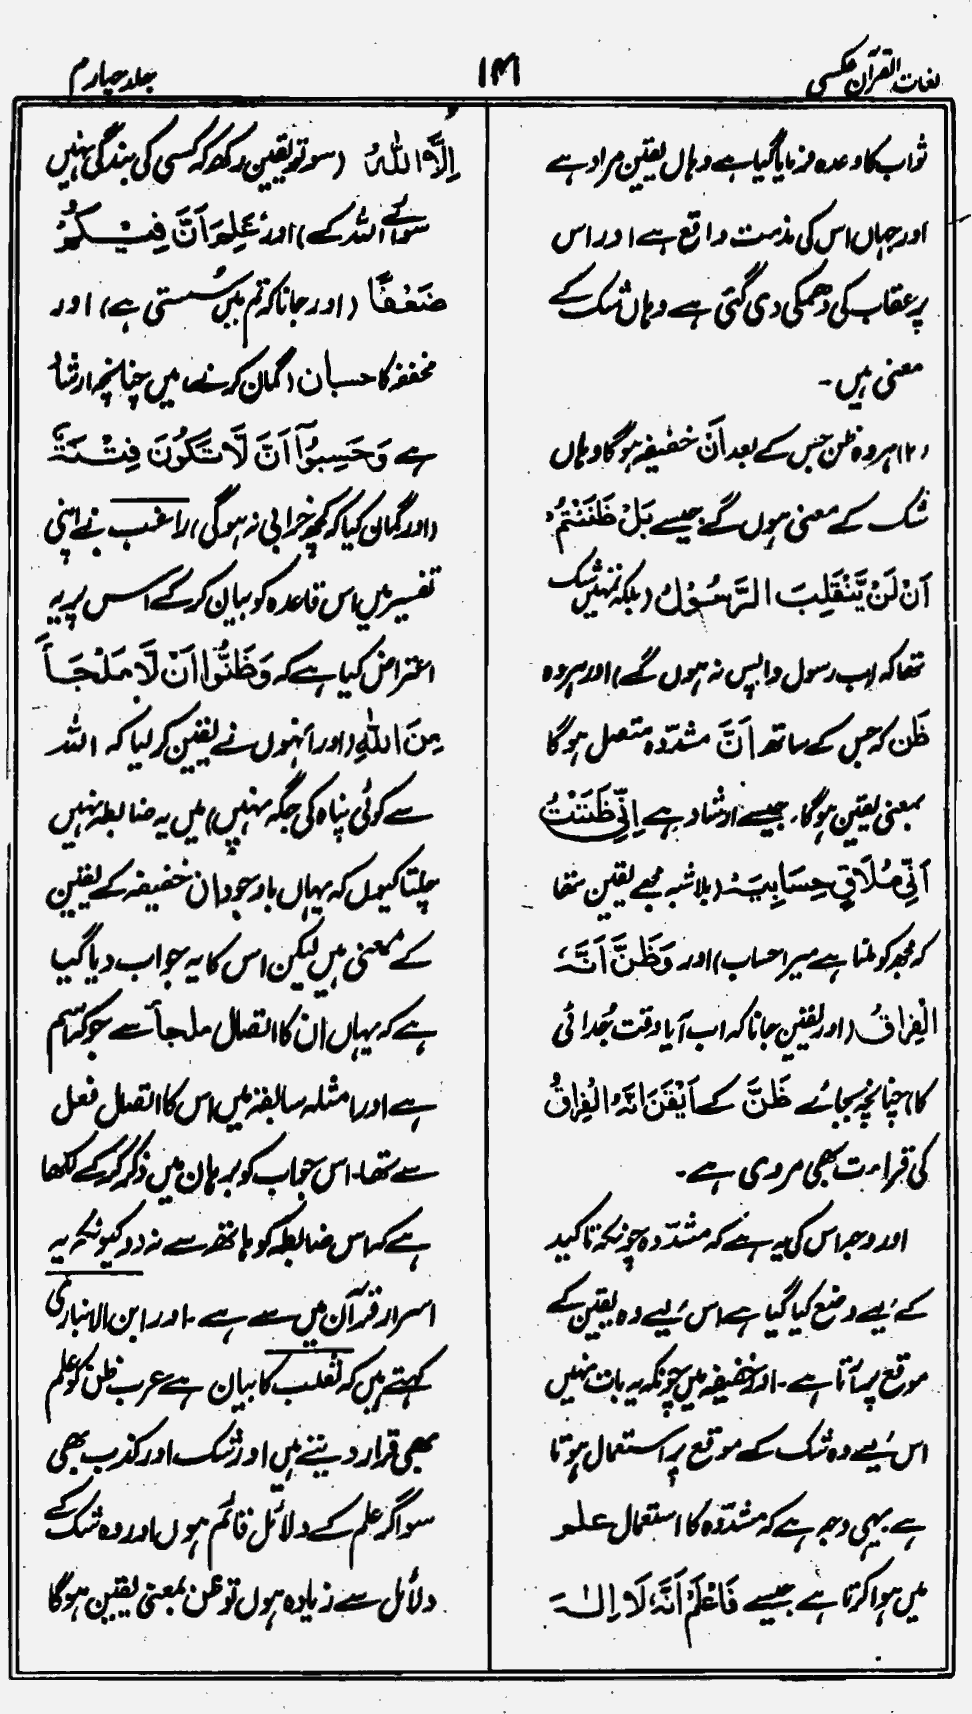 لغات القرآن عکسی
۱۴۱
جلد چہارم
ثواب کا وعدہ فرمایا گیا ہے وہاں یقین مراد ہے
اور جہاں اس کی مذمت واقع ہے اور اس
پر عقاب کی دھمکی دی گئی ہے وہاں شک کے
معنی ہیں ۔
(۲) ہر وہ ظن جس کے بعد اَن خفیفہ ہوگا وہاں
شک کے معنی ہوں گے جیسے بَلْ ظَنَنْتُمْ
اَنْ لَنْ یَّنْقَلِبَ الرَّسُوْلُ (بلکہ تمہیں شک
تھا کہ اب رسول واپس نہ ہوں گے) اور ہر وہ
ظن کہ جس کے ساتھ اَنَّ مشدّدہ متصل ہوگا
بمعنی یقین ہوگا، جیسے ارشاد ہے اِنِّیْ ظَنَنْتُ
اَنِّیْ مُلَاقٍ حِسَابِیَہْ (بلاشبہ مجھے یقین تھا
کہ مجھ کو ملنا ہے میرا حساب) اور وَظَنَّ اَنَّہُ
الْفِرَاقُ (اور یقین جانا کہ اب آیا وقت جُدائی
کا) چنانچہ بجائے ظَنَّ کے اَیْقَنَ اَنَّہُ الْفِرَاقُ
کی قراءت بھی مروی ہے ۔
اور وجہ اس کی یہ ہے کہ مشدّدہ چونکہ تاکید
کے لیے وضع کیا گیا ہے اس لیے وہ یقین کے
موقع پر آتا ہے ۔ اور خفیفہ میں چونکہ یہ بات نہیں
اس لیے وہ شک کے موقع پر استعمال ہوتا
ہے یہی وجہ ہے کہ مشدّدہ کا استعمال علم
میں ہوا کرتا ہے جیسے فَاعْلَمْ اَنَّہٗ لَا اِلٰہَ
اِلَّا اللّٰہُ (سو تو یقین رکھ کہ کسی کی بندگی نہیں
سوائے اللہ کے) اور عَلِمَ اَنَّ فِیْکُمْ
ضَعْفًا (اور جانا کہ تم میں سُستی ہے) اور
مخففہ کا حسبان (گمان کرنے) میں چنانچہ ارشاد
ہے وَحَسِبُوْٓا اَنْ لَّا تَکُوْنَ فِتْنَۃٌ
(اور گمان کیا کہ کچھ خرابی نہ ہوگی) راغب نے اپنی
تفسیر میں اس قاعدہ کو بیان کر کے اس پر یہ
اعتراض کیا ہے کہ وَظَنُّوْا اَنْ لَّا مَلْجَاَ
مِنَ اللّٰہِ (اور انہوں نے یقین کر لیا کہ اللہ
سے کوئی پناہ کی جگہ نہیں) میں یہ ضابطہ نہیں
چلتا کیوں کہ یہاں باوجود ان خفیفہ کے یقین
کے معنی ہیں لیکن اس کا یہ جواب دیا گیا
ہے کہ یہاں ان کا اتصال ملجأ سے جو کہ اسم
ہے اور امثلہ سابقہ میں اس کا اتصال فعل
سے تھا ۔ اس جواب کو برہان میں ذکر کر کے لکھا
ہے کہ اس ضابطہ کو ہاتھ سے نہ دو کیونکہ یہ
اسرار قرآن میں سے ہے ۔ اور ابن الانباری
کہتے ہیں کہ ثعلب کا بیان ہے عرب ظن کو علم
بھی قرار دیتے ہیں اور شک اور کذب بھی
سو اگر علم کے دلائل قائم ہوں اور وہ شک کے
دلائل سے زیادہ ہوں تو ظن بمعنی یقین ہوگا